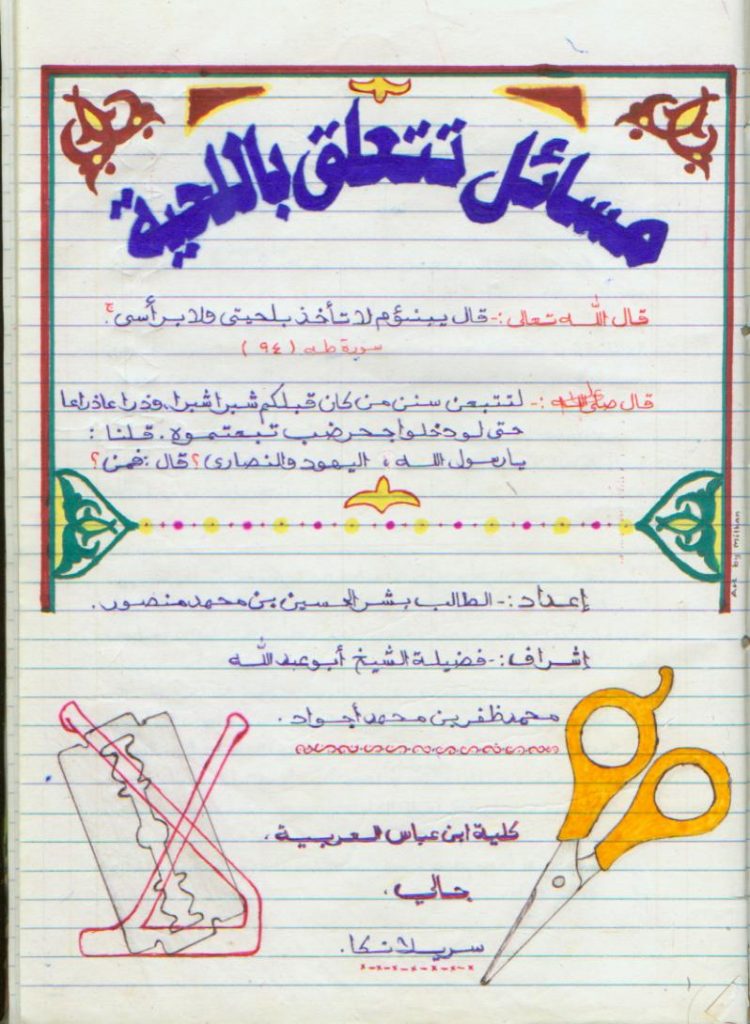 مسائل تتعلق باللحية
قال الله تعالى :- قال يبنؤم لا تأخذ بلحيتي ولا برأسي ج.
سورة طه (٩٤)
قال صلى الله :- لتتبعن سنن من كان قبلكم شبرا شبرا، وذراعا ذراعا
حتى لو دخلوا جحر ضب تبعتموه. قلنا :
يا رسول الله ، اليهود والنصارى؟ قال : فمن؟
Art by Milhan
إعداد :- الطالب بشر الحسين بن محمد منصور.
إشراف :- فضيلة الشيخ أبو عبد الله
محمد ظفر بن محمد أجواد.
كلية ابن عباس العربية.
جالي.
سريلانكا.